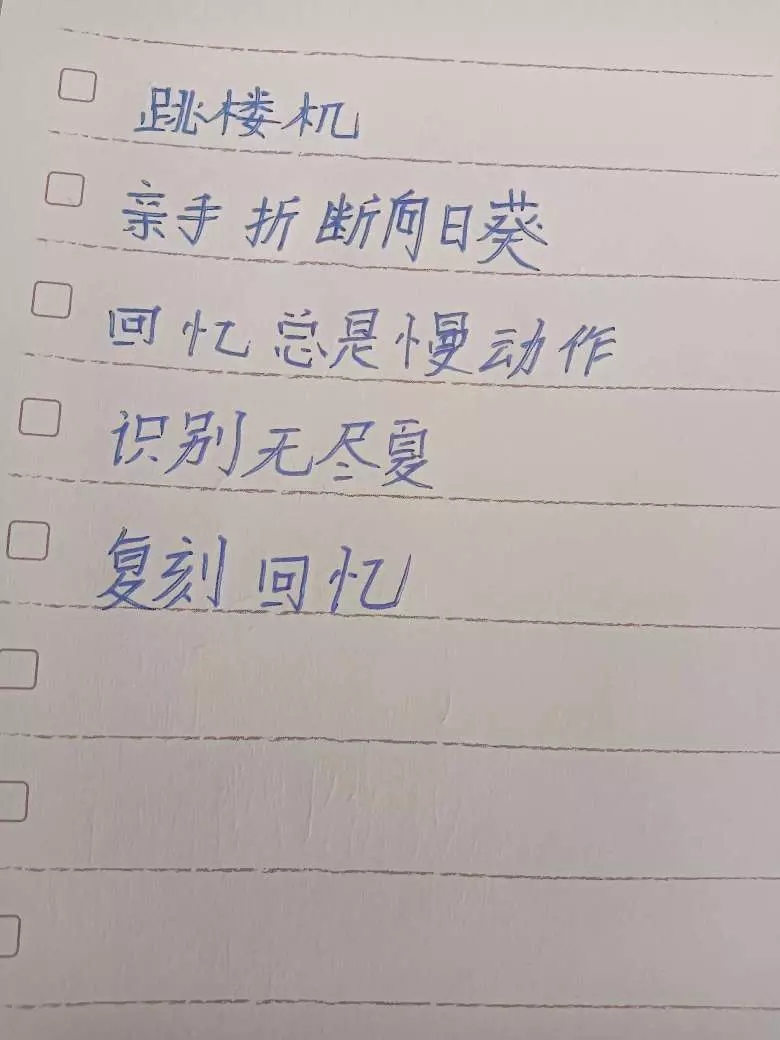 跳楼机
亲手折断向日葵
回忆总是慢动作
识别无尽夏
复刻回忆